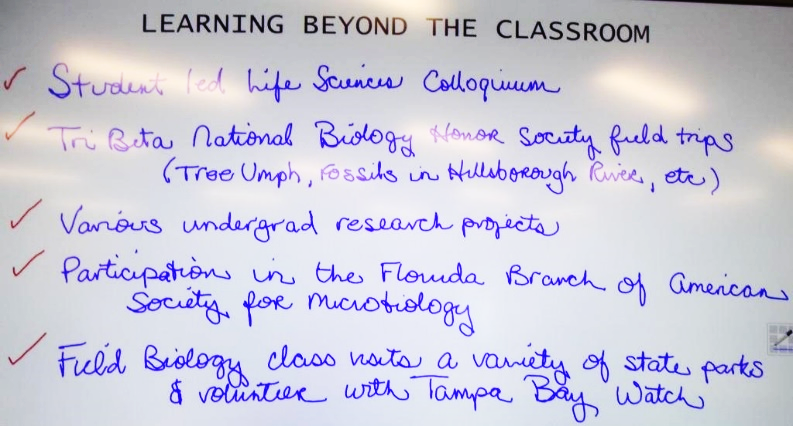 LEARNING BEYOND THE CLASSROOM
Student led Life Sciences Colloquium
Tri Beta National Biology Honor Society field trips
(Tree Umph, Fossils in Hillsborough River, etc)
Various undergrad research projects
Participation in the Florida Branch of American
Society for Microbiology
Field Biology class visits a variety of state parks
& volunteer with Tampa Bay Watch